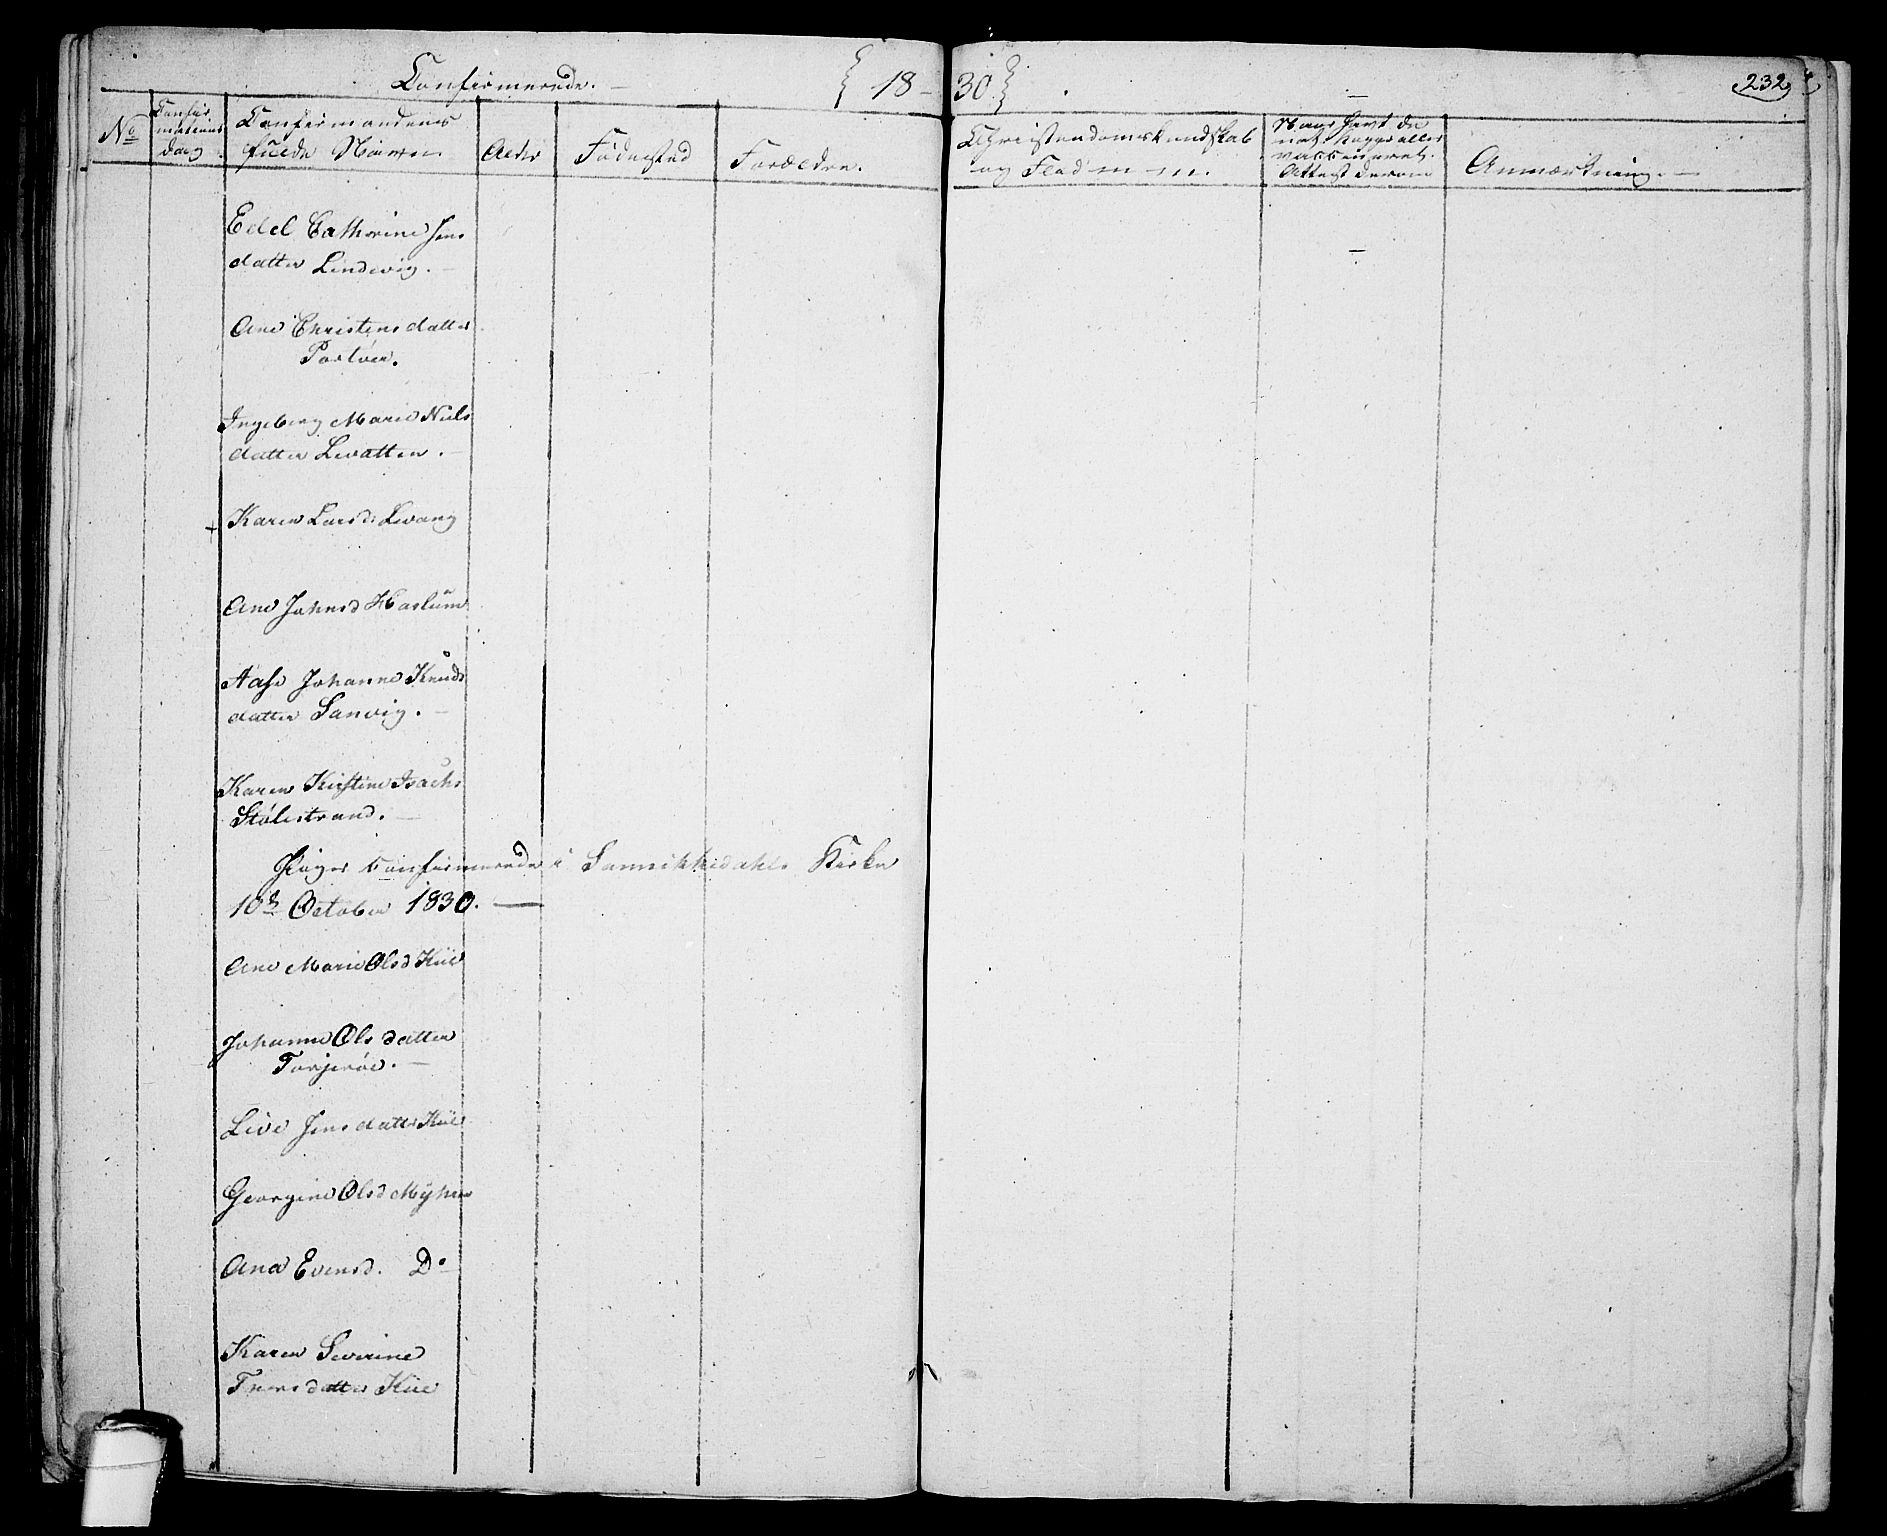 Confirmerede. 18 - 30
232
No
Confir
mations
dag
Confirmandens
fulde Navn
Alder
Fødested
Forældre.
Christendomskundskab
og Flid
Naar havt de
nat. Kopper eller
vaccineret.
Attest derom
Anmærkning.
Edel Cathrine Jens
datter Lindvig.
Ane Christensdatter
Portøer.
Ingeborg Marie Niels
datter Levatten.
+ Karen Larsd: Levang
Ane Johnsd Haslum
Aase Johanne Knuds
datter Sanvig.
Karen Kirstine Isachs
Stølestrand.
Piger Confirmerede i Sannikkedahls Kirke
10de October 1830.
Ane Marie Olsd Kiil
Johanne Olsdatter
Torjerøe.
Live Jensdatter Kiil
Georgine Olsd Myhre
Ane Evensd. Do
Karen Severine
datter Kiil